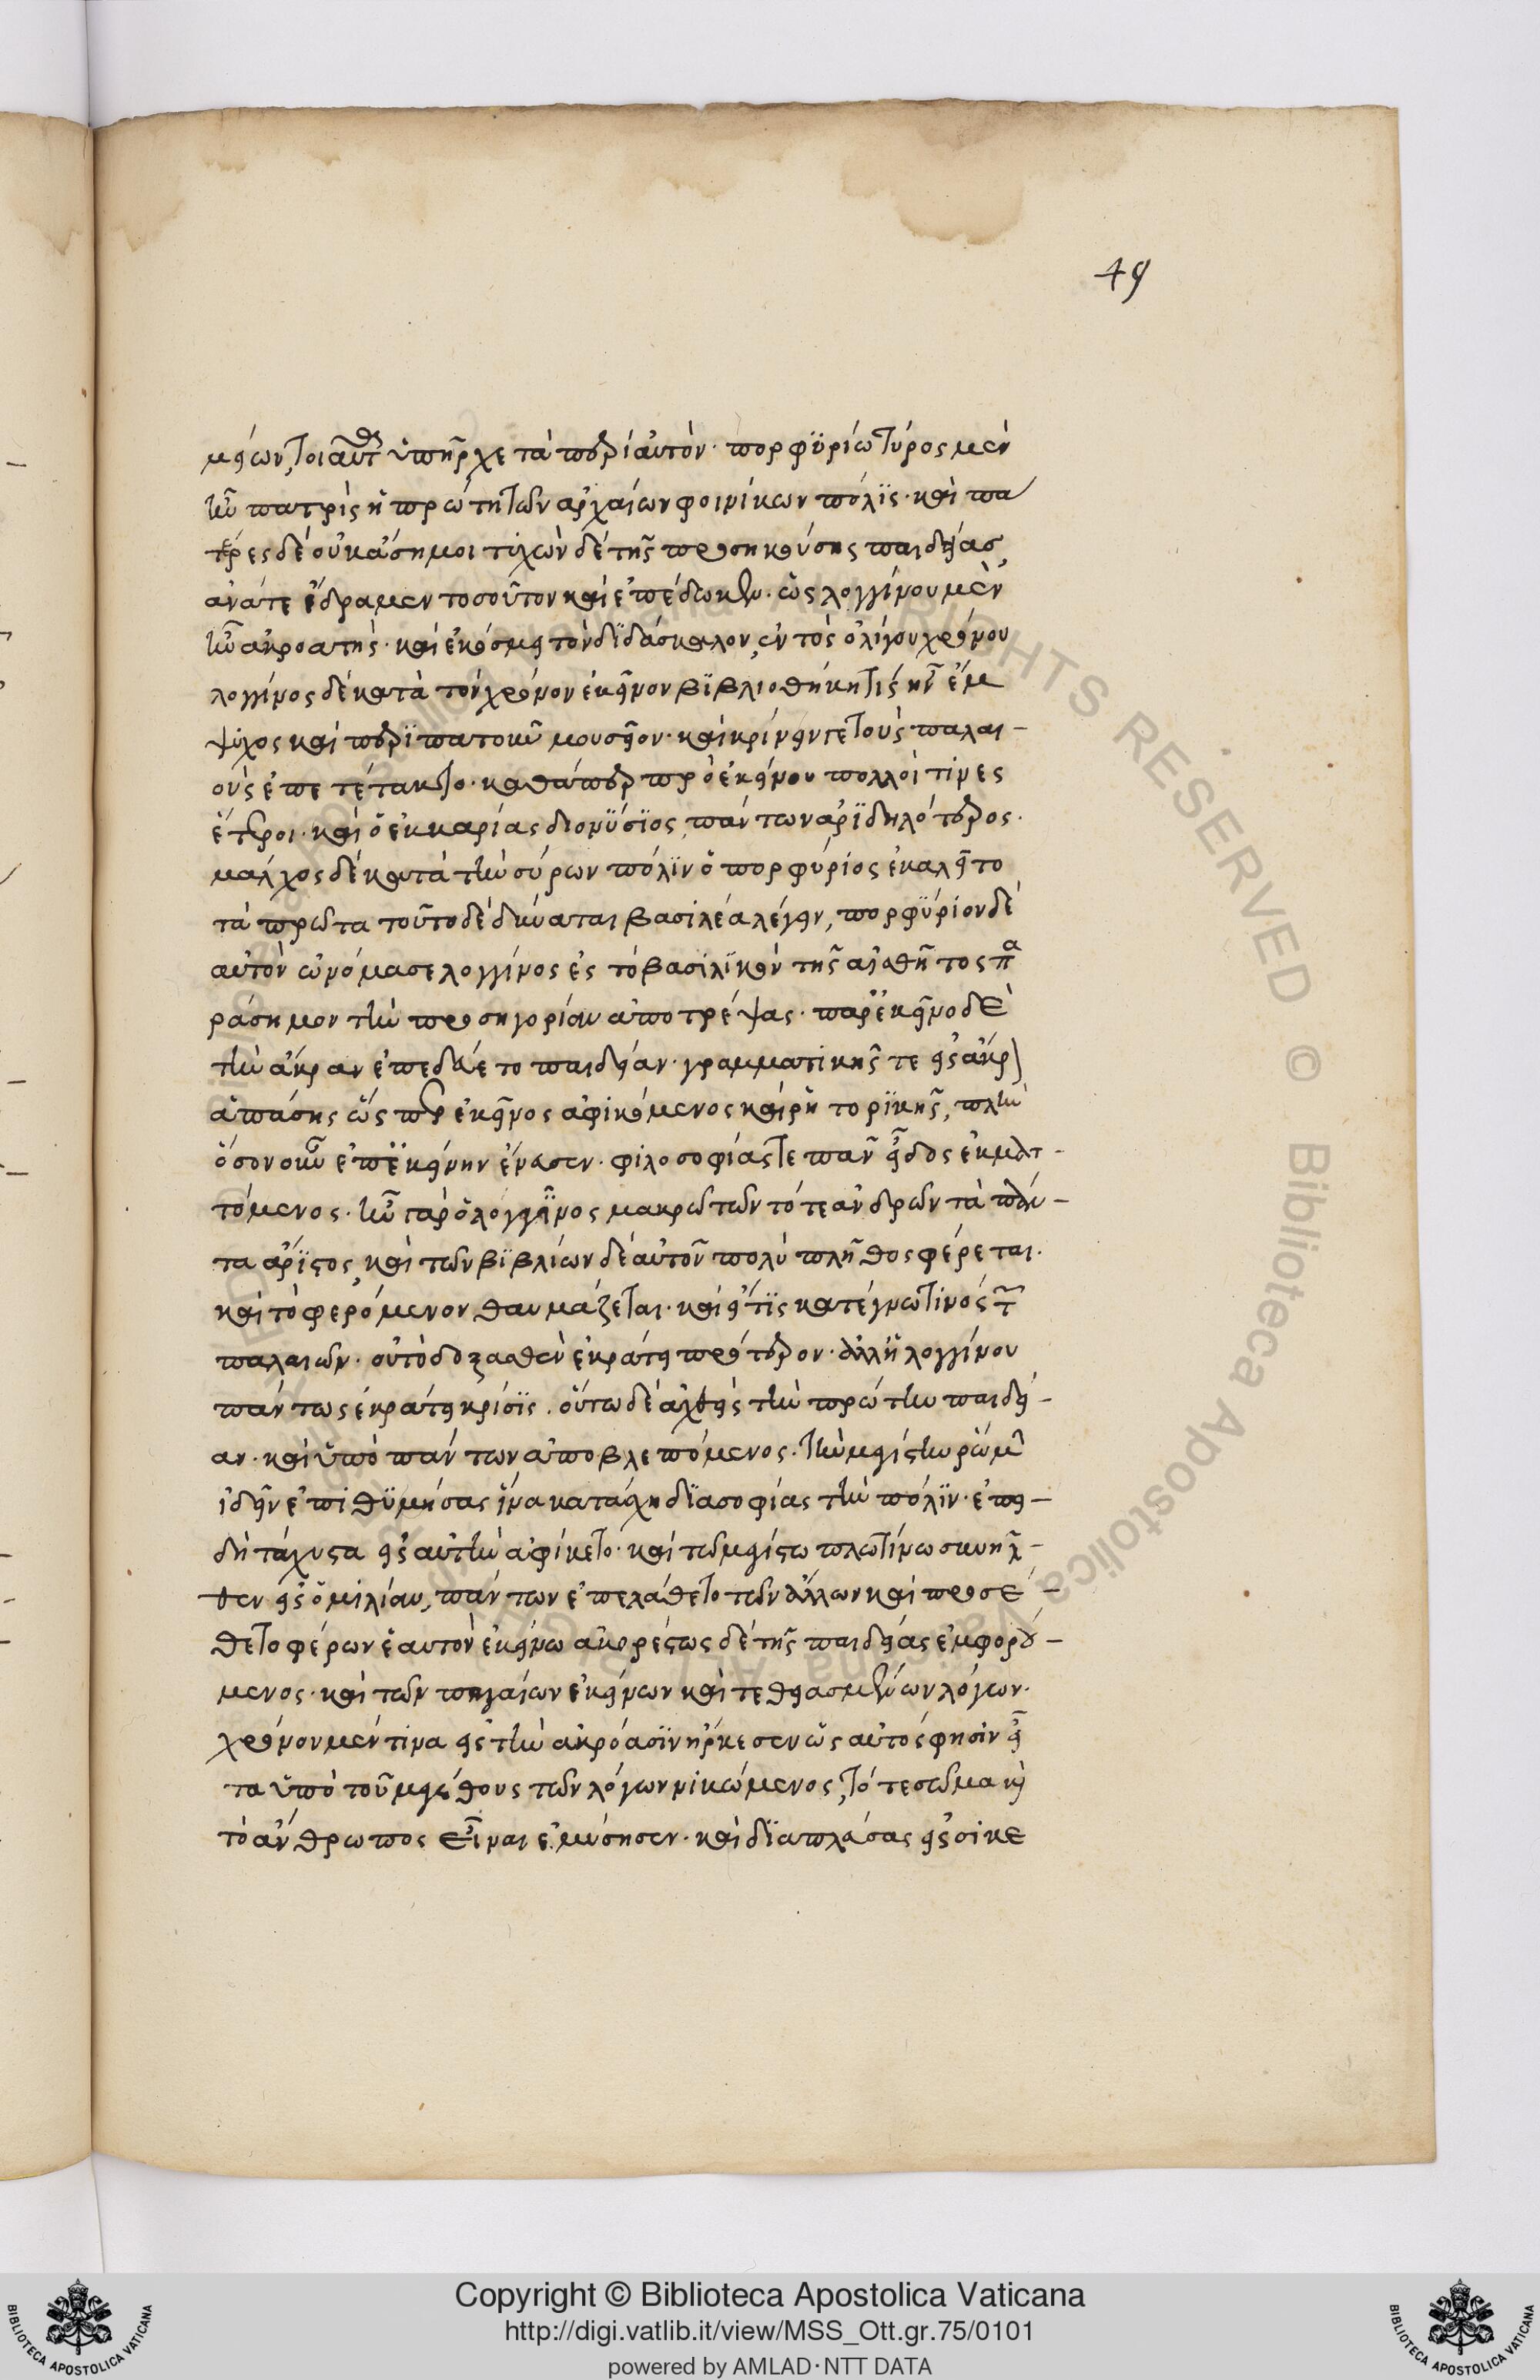 49
μείων, τοιαῦτα ὑπῆρχε τὰ περὶ αὐτόν· πορφϋρίω τύρος μὲν
ἦν πατρὶς ἡ πρώτη τῶν ἀρχαίων φοινίκων πόλϊς· καὶ πα
τέρες δὲ οὐκ ἄσημοι τυχὼν δὲ τῆς προσηκούσης παιδείας,
ἀνά τε ἔδραμεν τοσοῦτον καὶ ἐπέδωκεν· ὡς λογγίνου μὲν
ἦν ἀκροατής· καὶ ἐκόσμει τὸν δϊδάσκαλον, ἐντὸς ὀλίγου χρόνου
λογγίνος δὲ κατὰ τὸν χρόνον ἐκεῖνον βϊβλιοθήκη τίς ἦν ἔμ
ψυχος καὶ περϊπατοῦν μουσεῖον· καὶ κρίνειν γε τοὺς παλαι-
οὺς ἐπετέτακτο· καθάπερ πρὸ ἐκείνου πολλοί τινες
ἕτεροι· καὶ ὁ ἐκ καρίας διονϋσϊος πάντων ἀρϊδηλότερος·
μάλχος δὲ κατὰ τὴν σύρων πόλϊν ὁ πορφύριος ἐκαλεῖτο
τὰ πρῶτα τοῦτο δὲ δύναται βασιλέα λέγειν, πορφϋριον δὲ
αὐτὸν ὠνόμασε λογγίνος ἐς τὸ βασιλϊκὸν τῆς αἰσθῆτος πα
ράσημον τὴν προσηγορίαν ἀποτρέψας· παρ' ἐκείνο δὲ
τὴν ἄκραν ἐπεδύετο παιδείαν· γραμματικῆς τε εἰς ἄκρον
ἁπάσης ὥσπερ ἐκεῖνος ἀφικόμενος καὶ ῥητορϊκῆς, πλὴν
ὅσον οὐκ ἐπ' ἐκείνην ἔνευσεν· φιλοσοφίας τε πᾶν εἶδος ἐκματ-
τόμενος· ἦν γὰρ ὁ λογγῖνος μακρῶ τῶν τότε ἀνδρῶν τὰ πάν-
τα ἄρϊστος, καὶ τῶν βϊβλίων δὲ αὐτοῦ πολὺ πλῆθος φέρεται·
καὶ τὸ φερόμενον θαυμάζεται· καὶ εἴ τϊς κατέγνω τινός τῶν
παλαιῶν· οὐ τὸ δοξασθὲν ἐκράτει πρότερον· ἀλλ' ἡ λογγίνου
πάντως ἐκράτει κρίσϊς· οὕτω δὲ ἀχθεὶς τὴν πρώτην παιδεί-
αν· καὶ ὑπὸ πάντων ἀποβλεπόμενος· τὴν μεγίστην ῥώμην
ἰδεῖν ἐπιθϋμήσας ἵνα κατάσχη δϊὰ σοφίας τὴν πόλϊν· ἐπει-
δὴ τάχιστα εἰς αὐτὴν ἀφίκετο· καὶ τῶ μεγίστω πλωτίνω συνῆλ-
θεν εἰς ὁμιλίαν, πάντων ἐπελάθετο τῶν ἄλλων καὶ προσέ-
θετο φέρων ἑαυτὸν ἐκείνω ἀκορέστως δὲ τῆς παιδείας ἐμφορού-
μενος· καὶ τῶν πηγαίων ἐκείνων καὶ τεθειασμένων λόγων·
χρόνον μέν τινα εἰς τὴν ἀκρόασϊν ἤρκεσεν ὡς αὐτός φησὶν εἶ
τα ὑπὸ τοῦ μεγέθους τῶν λόγων νικώμενος, τό τε σῶμα καὶ
τὸ ἄνθρωπος εἶναι ἐμύσησεν· καὶ δϊαπλεύσας εἰς σικε
Copyright © Biblioteca Apostolica Vaticana
http://digi.vatlib.it/view/MSS_Ott.gr.75/0101
powered by AMLAD·NTT DATA